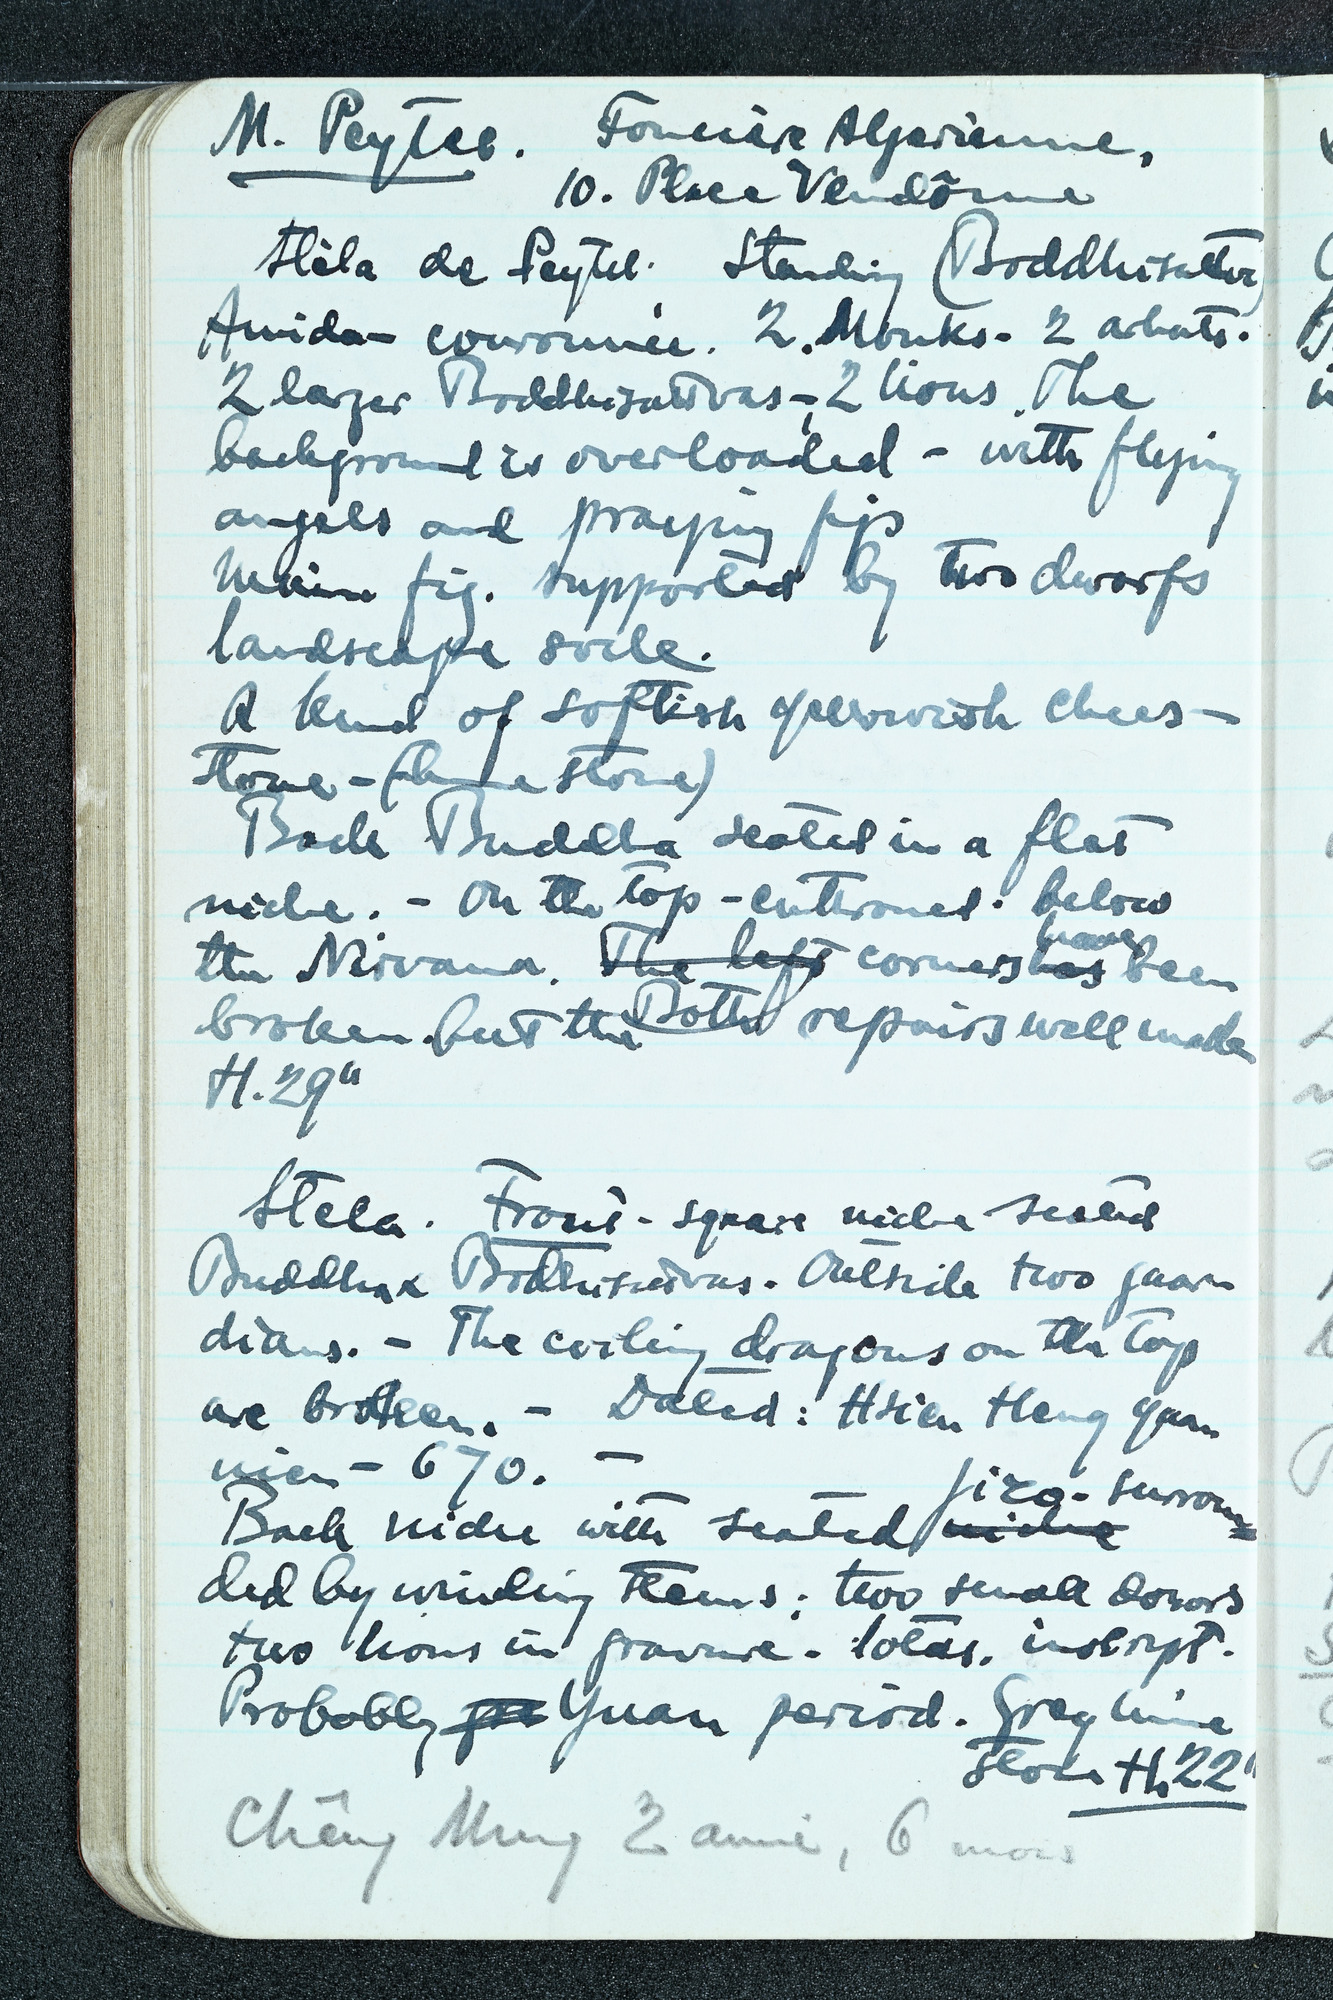 M. Peytel. Foncière Algerienne,
10. Place Vendôme
Stela de Peytel. Standing (Boddhisattva)
Amida – couronnée. 2 Monks – 2 arhats.
2 larger Boddhisattvas –, 2 lions. The
background is overloaded – with flying
angels and praying figs
Main fig. supported by two dwarfs
landscape socle.
A kind of softish yellowish
stone – (lime stone)
Back Buddha seated in a flat
niche. – On the top – enthroned. below
the Nirvana. The left corners has have been
broken but the Both repairs well made
H. 29"
Stela. Front – square niche seated
Buddha & Bodhisattvas. Outside two guar
dians. – The coiling dragons on the top
are broken. – Dated: Hsien Heng yuan
nien – 670. –
Back niche with seated niche Jizo. surroun=
ded by winding stems; two small donors
two lions in gravure. lotus. inscript.
Probably Yuan period. Grey lime
stone H. 22"
Chêng Ming 2 année, 6 mois